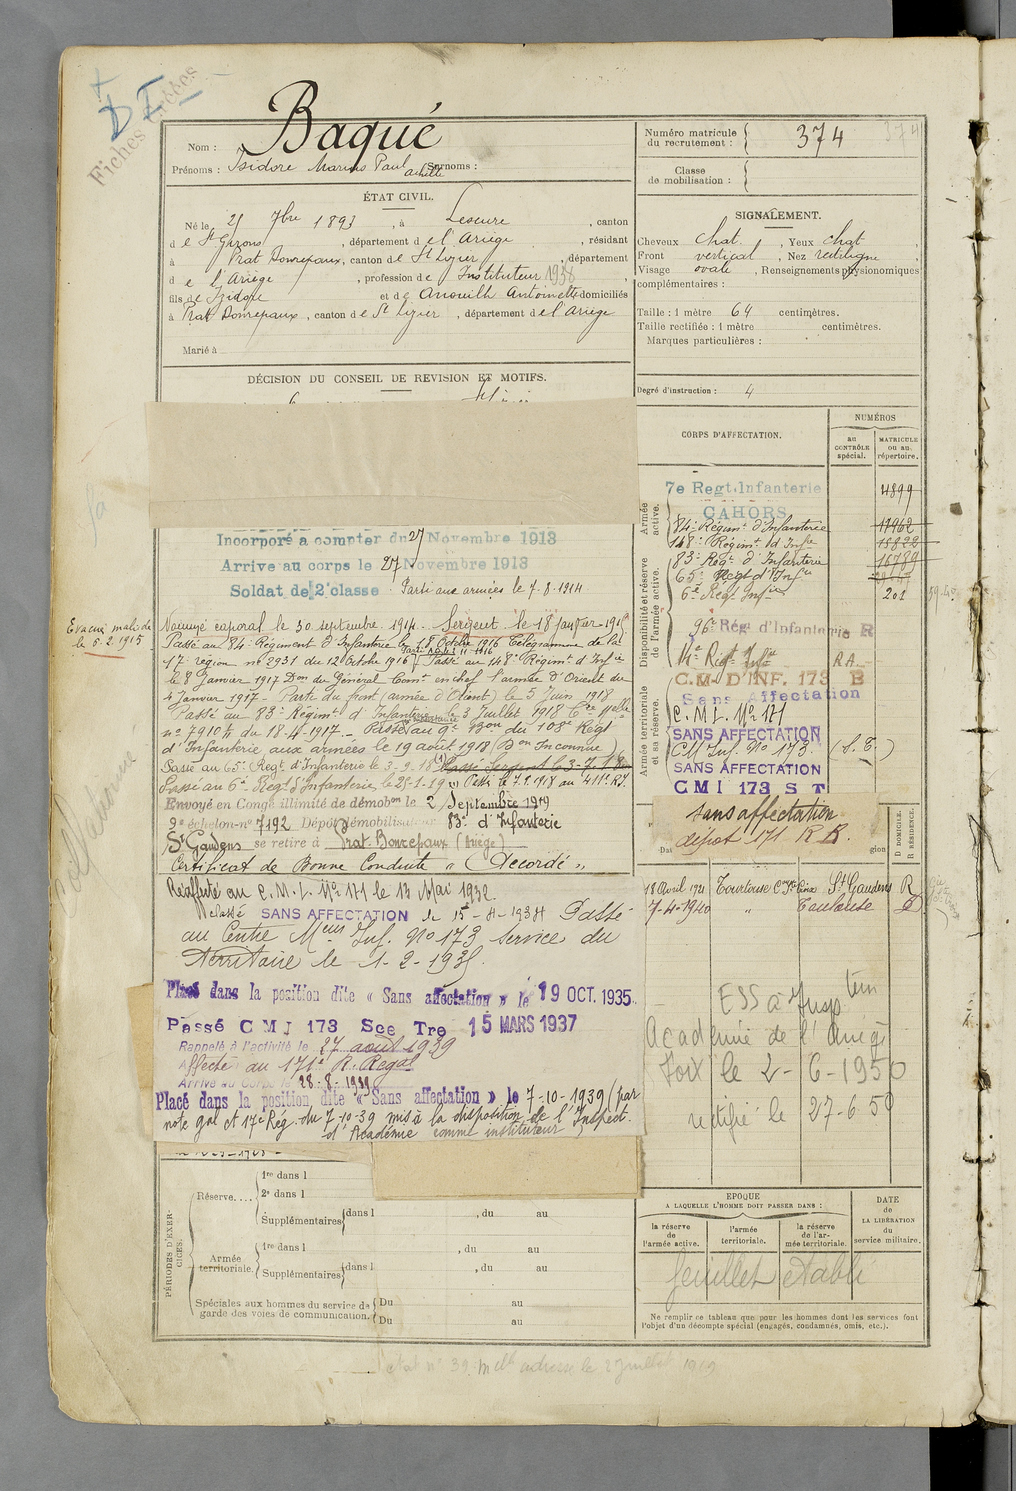 Fiches
D I
Nom : Baqué
Prénoms : Isidore Marius Paul Achille Surnoms :
Numéro matricule du recrutement : 374
Classe de mobilisation :
ÉTAT CIVIL.
Né le 25 7bre 1893, à Lescure, canton
de St Girons, département de l'Ariège, résidant
à Prat Bonrepaux, canton de St Lizier, département
de l'Ariège, profession de Instituteur 1938
fils de Isidore et de Anouilh Antoinette domiciliés
à Prat Bonrepaux, canton de St Lizier, département de l'Ariège
Marié à
SIGNALEMENT.
Cheveux chat. Yeux chat
Front vertical, Nez rectiligne,
Visage ovale, Renseignements physionomiques
complémentaires :
Taille : 1 mètre 64 centimètres.
Taille rectifiée : 1 mètre centimètres.
Marques particulières :
Degré d'instruction : 4
DÉCISION DU CONSEIL DE REVISION ET MOTIFS.
Incorporé à compter du 27 Novembre 1913
Arrivé au corps le 27 Novembre 1913
Soldat de 2e classe. Parti aux armées le 7-8-1914
Evacué malade
le 5.2.1915
Nommé caporal le 30 septembre 1914. Sergent le 18 janvier 1916
Passé au 84e Régiment d'Infanterie le 18 Octobre 1916 Télégramme de la
17e région no 2931 du 12 Octobre 1916 Passé au 148e Régimt d'Infie
le 8 Janvier 1917 Don du Général Comt en chef l'armée d'Orient du
4 Janvier 1917 - Parti du front (armée d'Orient) le 5 Juin 1918
Passé au 83e Régimt d'Infanterie le 3 Juillet 1918 Cre Mlle
no 7910 K du 18-4-1917. - Passé au 9e Bon du 108e Régt
d'Infanterie aux armées le 19 août 1918 (Don Inconnue)
Passé au 65e Regt d'Infanterie le 3-9-18 Passé Sergent le 3-7-18
Passé au 6e Régt d'Infanterie le 25-1-19 Passé le 7.9.1918 au 411e R.I.
Envoyé en Congé illimité de démobon le 2 Septembre 1919
9e échelon no 7192 Dépôt démobilisateur 83e d'Infanterie
St Gaudens se retire à Prat Bonrepaux (Ariège)
Certificat de Bonne Conduite « Accordé »
Réaffecté au C.M.I. No 171 le 13 Mai 1932
Classé SANS AFFECTATION le 15-4-1934 Passé
au Centre Meur Inf. No 173 Service du
Territoire le 1-2-1935.
Placé dans la position dite « Sans affectation » le 19 OCT. 1935.
Passé C M I 173 Sce Tre 15 MARS 1937
Rappelé à l'activité le 27 août 1939
Affecté au 171e R. Régal
Arrivé au Corps le 28-8-1939
Placé dans la position dite « Sans affectation » le 7-10-1939 (par
note gal et 17e Rég. du 7-10-39 mis à la disposition de l'Inspect.
d'Académie comme instituteur)
CORPS D'AFFECTATION.
NUMÉROS
au CONTRÔLE spécial.
MATRICULE ou au répertoire.
Armée active.
Disponibilité et réserve de l'armée active.
Armée territoriale et sa réserve.
7e Regt. Infanterie 4899
CAHORS
84e Régimt d'Infanterie 11462
148e Régimt d'Infie 15822
83e Régt d'Infanterie 16789
65e Regt d'Infie
6e Régt Infie 201
96e Rég d'Infanterie R
14e Régt Infie R.A.
C.M. D'INF. 173 B
Sans Affectation
C.M.I. No 171
SANS AFFECTATION
CM Inf. No 173 (S.T.)
SANS AFFECTATION
C M I 173 S T
sans affectation
dépôt 171 R.R.
D DOMICILE.
R RÉSIDENCE.
18 Avril 1921 Tourtouse Con Ste Croix St Gaudens R
7-4-1940 " Toulouse D
ESS à Insptein
Académie de l'Ariège
Foix le 2-6-1950
rectifié le 27-6-50
PÉRIODES D'EXERCICES.
Réserve....
1re dans l
2e dans l
Supplémentaires dans l , du au
Armée territoriale.
1re dans l , du au
Supplémentaires dans l , du au
Spéciales aux hommes du service de garde des voies de communication.
Du au
Du au
EPOQUE
A LAQUELLE L'HOMME DOIT PASSER DANS :
la réserve de l'armée active.
l'armée territoriale.
la réserve de l'armée territoriale.
DATE de LA LIBÉRATION du service militaire.
feuillet établi
Ne remplir ce tableau que pour les hommes dont les services font
l'objet d'un décompte spécial (engagés, condamnés, omis, etc.).